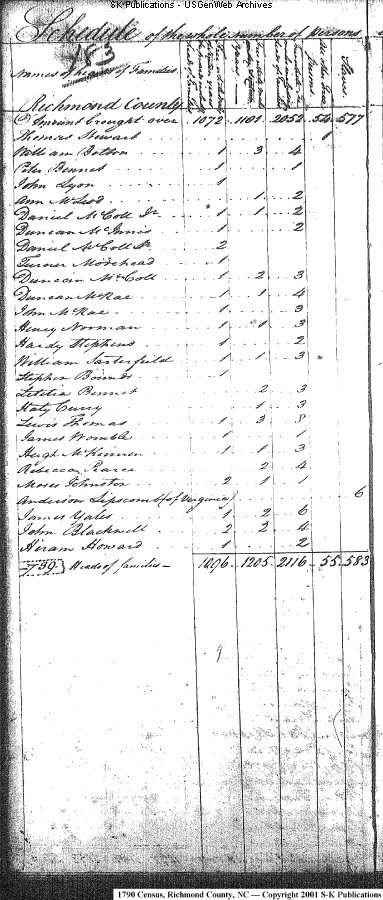 SK Publications - USGenWeb Archives
Schedule of the whole number of persons
183
Names of heads of Families
Slaves
Richmond County
Amount brought over 1072 1181 2052 54 577
Thomas Stewart 1
William Dotton 1 3 4
Peter Bennet 1 1
John Lyon 1
Ann McLeod 1 2
Daniel McColl Jr 1 1 2
Duncan McInnis 1 2
Daniel McColl Sr 2
Turner Morehead 1
Duncan McColl 1 2 3
Duncan McRae 1 1 4
John McRae 1 3
Henry Norman 1 1 3
Hardy Stephens 1 2
William 1 1 3
Stephen 1
Letitia Bennet 2 3
Katy Curry 1 3
Lewis Thomas 1 3 8
James Womble 1 1
Hugh McKinnon 1 1 3
Rebecca Pearce 2 4
Moses Johnston 2 1 1
Anderson Lipscomb (of Virginia) 6
James Yates 1 2 6
John Blackwell 2 2 4
Hiram Howard 1 2
739 Heads of families 1096 1205 2116 55 583
1790 Census, Richmond County, NC — Copyright 2001 S-K Publications